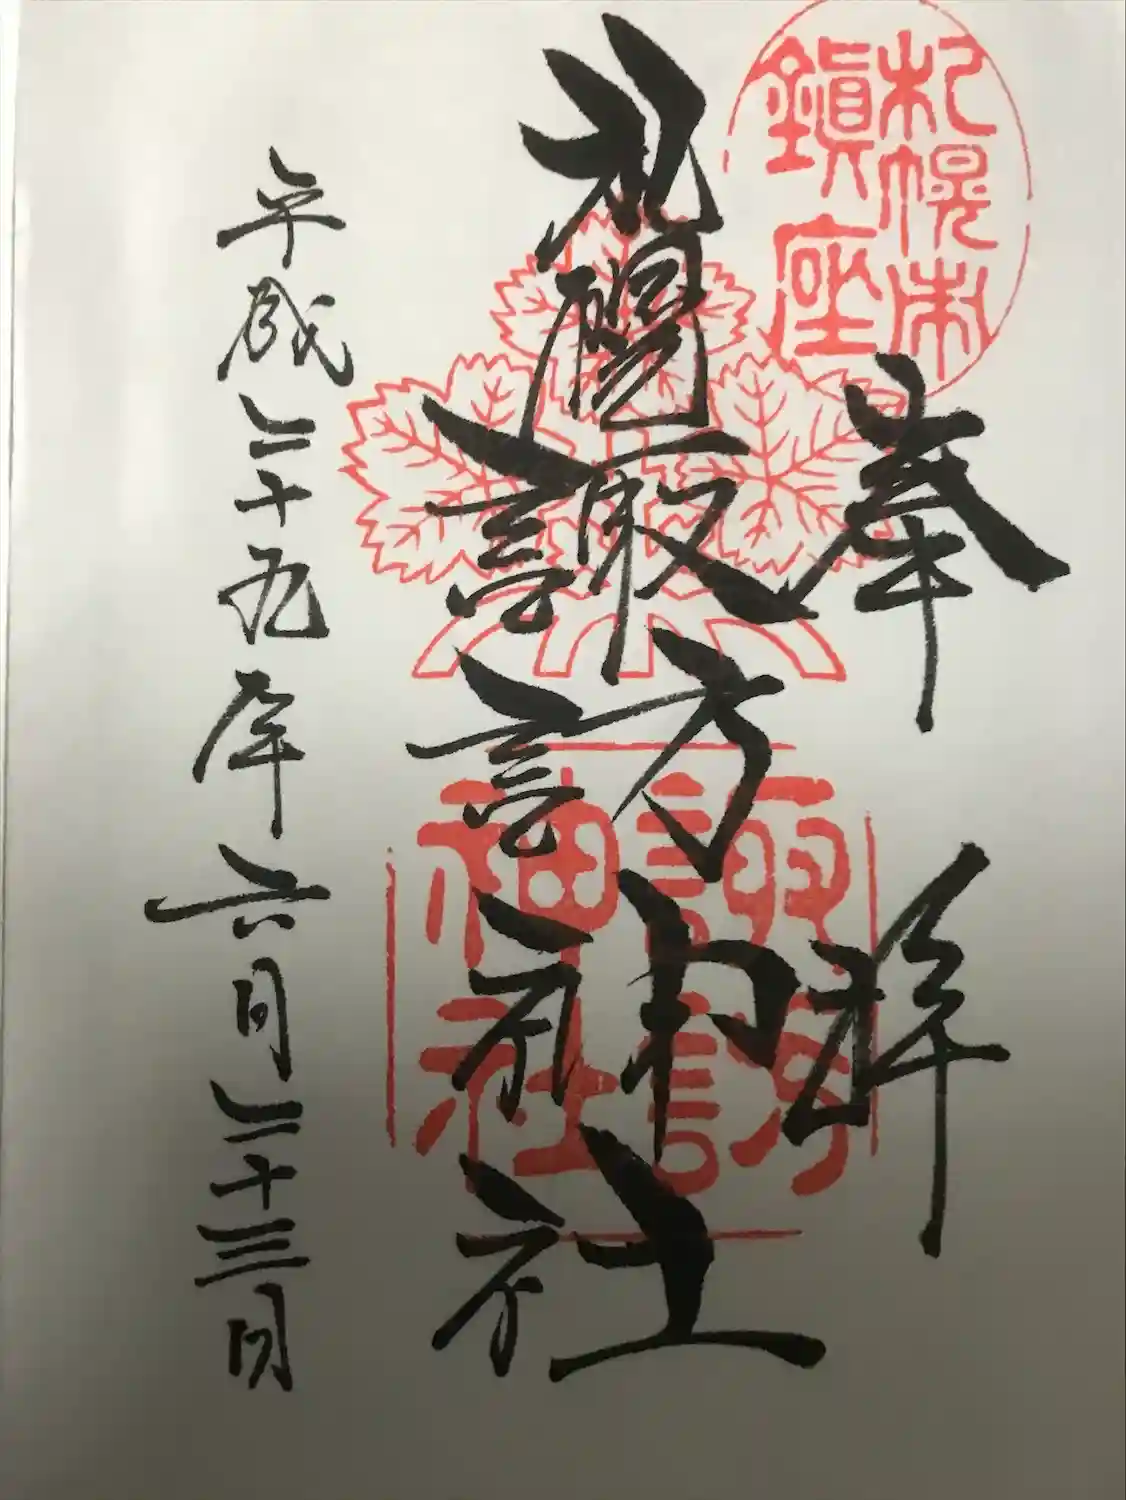 札幌市
鎮座
奉拝
札幌諏訪神社
諏訪
神社
平成二十九年六月二十三日